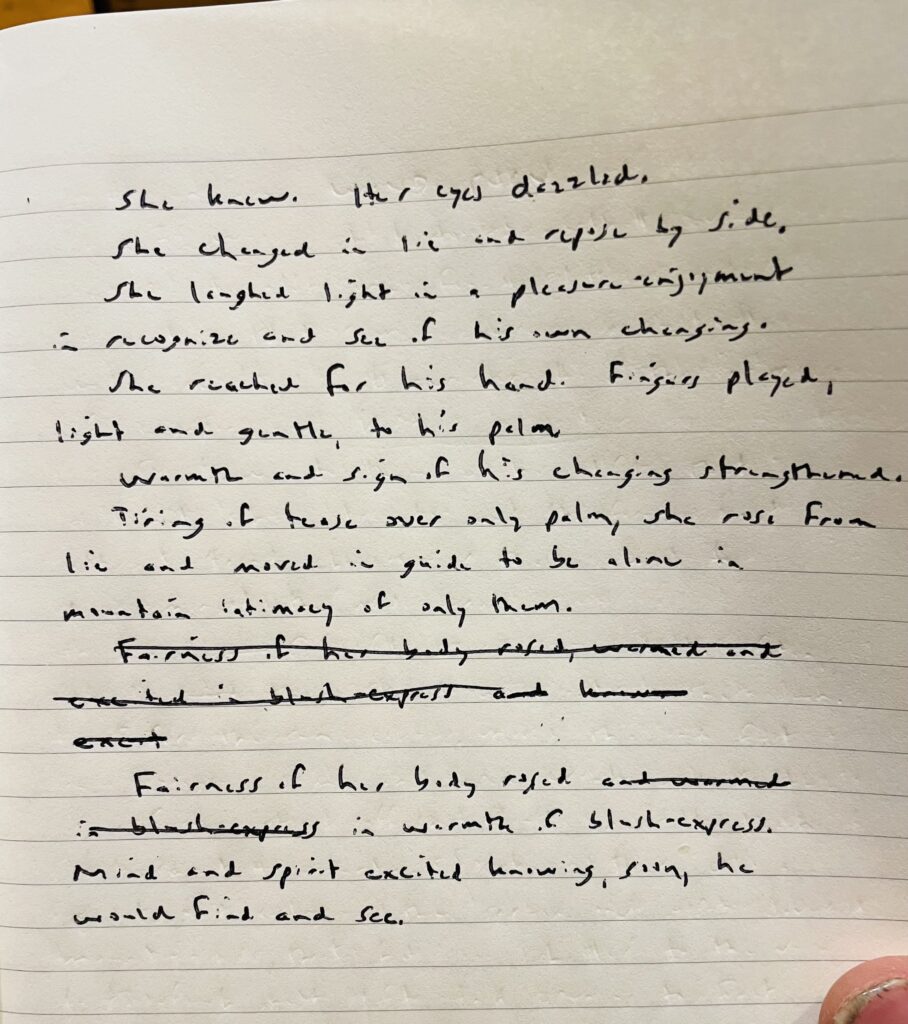 She knew. Her eyes dazzled.
She changed in lie and repose by side.
She laughed light in a pleasure-enjoyment
in recognize and see of his own changing.
She reached for his hand. Fingers played,
light and gentle, to his palm.
Warmth and sign of his changing strengthened.
Tiring of tease over only palm, she rose from
lie and moved in guide to be alone in
mountain intimacy of only them.
Fairness of her body rosed, warmed and
excited in blush-express and known
excit
Fairness of her body rosed and warmed
in blush-express in warmth of blush-express.
Mind and spirit excited knowing, soon, he
would find and see.